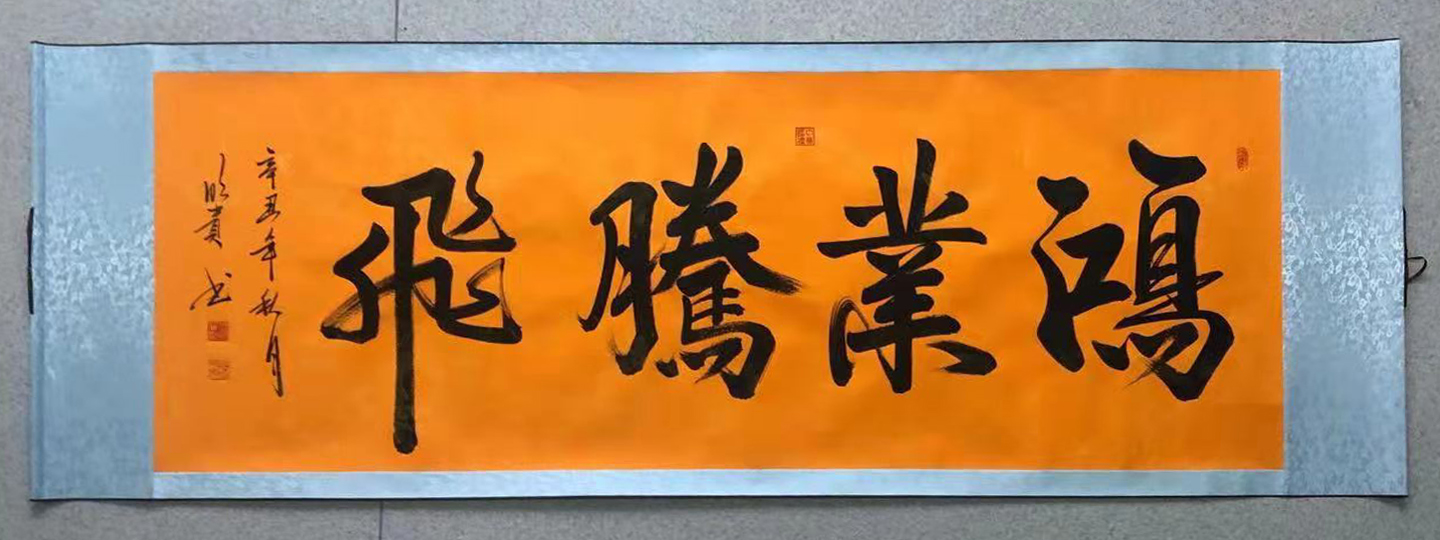 鴻業騰飛
辛丑年秋月
貴書